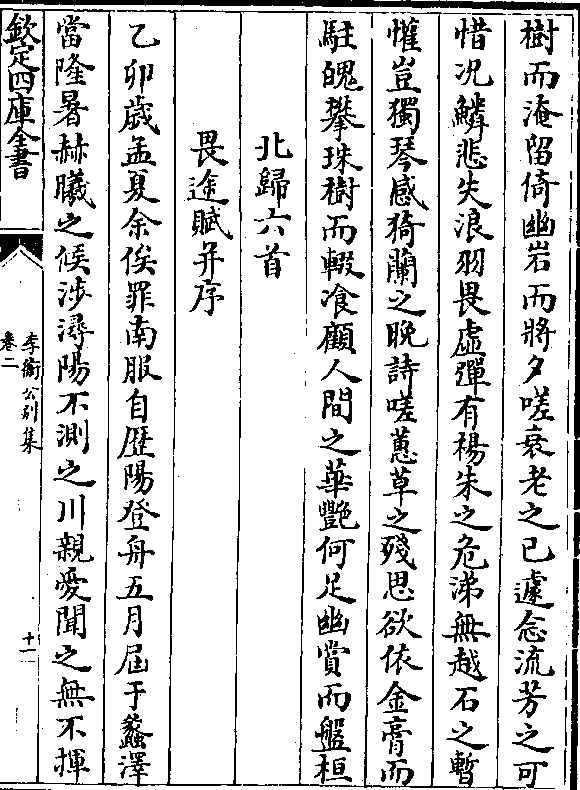 樹而淹留倚幽岩而將夕嗟衰老之已遽念流芳之可
惜况鱗悲失浪羽畏虛彈有楊朱之危涕無越石之暫
懽豈獨琴感猗蘭之晚詩嗟蕙草之殘思欲依金膏而
駐魄攀珠樹而輟飡顧人間之華艷何足幽賞而盤桓
北歸六首
畏途賦并序
乙卯歲孟夏余俟罪南服自歷陽登舟五月屆于蠡澤
當隆暑赫曦之候涉潯陽不測之川親愛聞之無不揮
欽定四庫全書
李衞公别集
卷二
十一